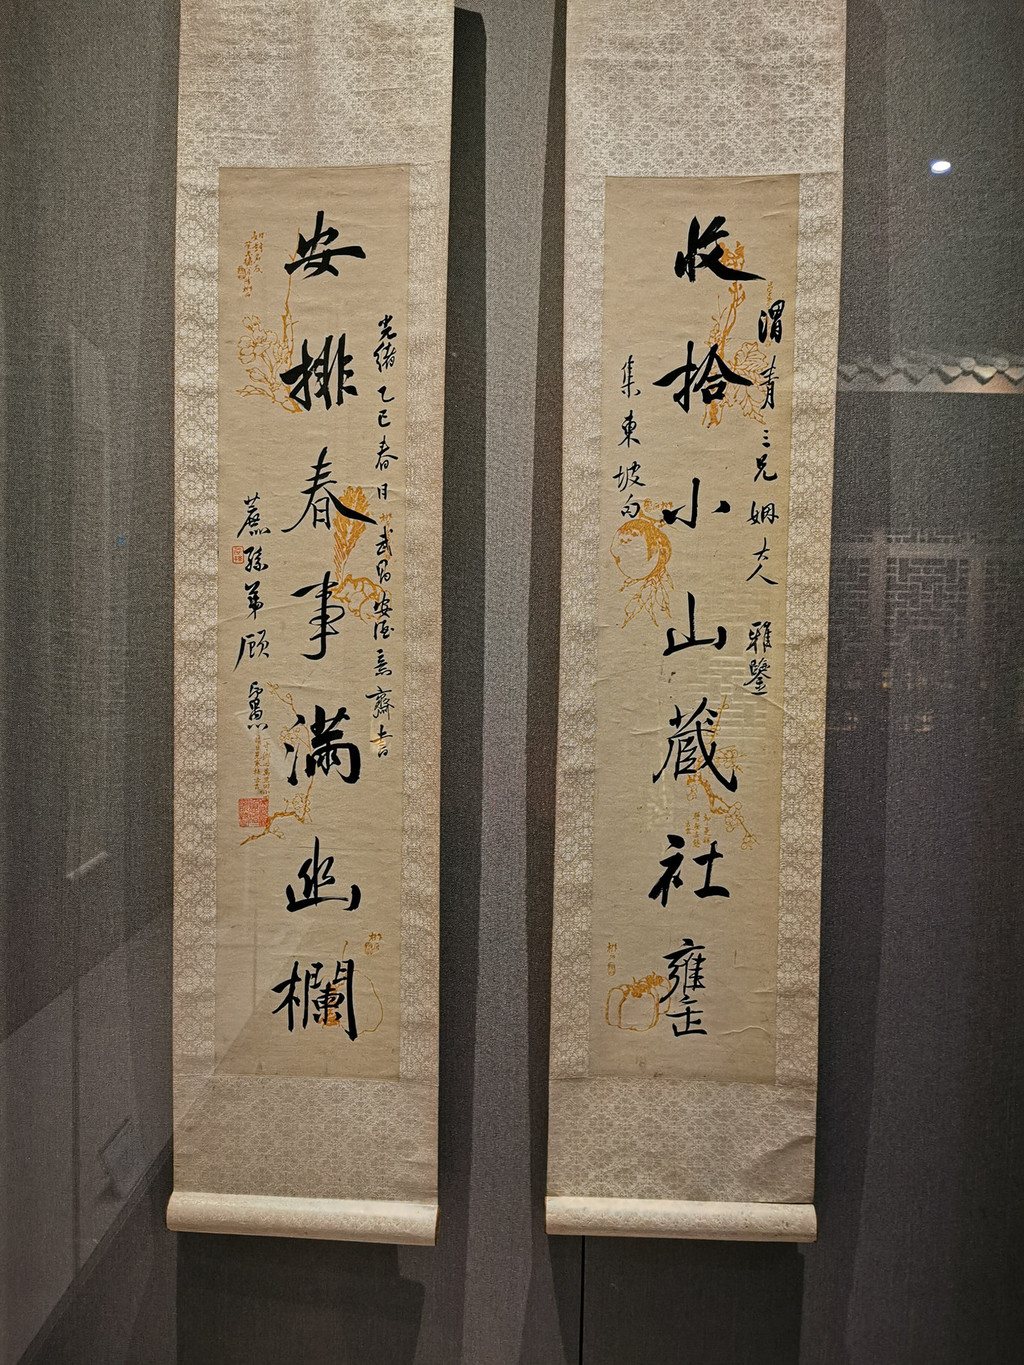 收拾小山藏社甕
渭青三兄姻大人 雅鑒
集東坡句
安排春事滿幽欄
光緒乙巳春日
武昌安
齋書
蔗孫弟顧